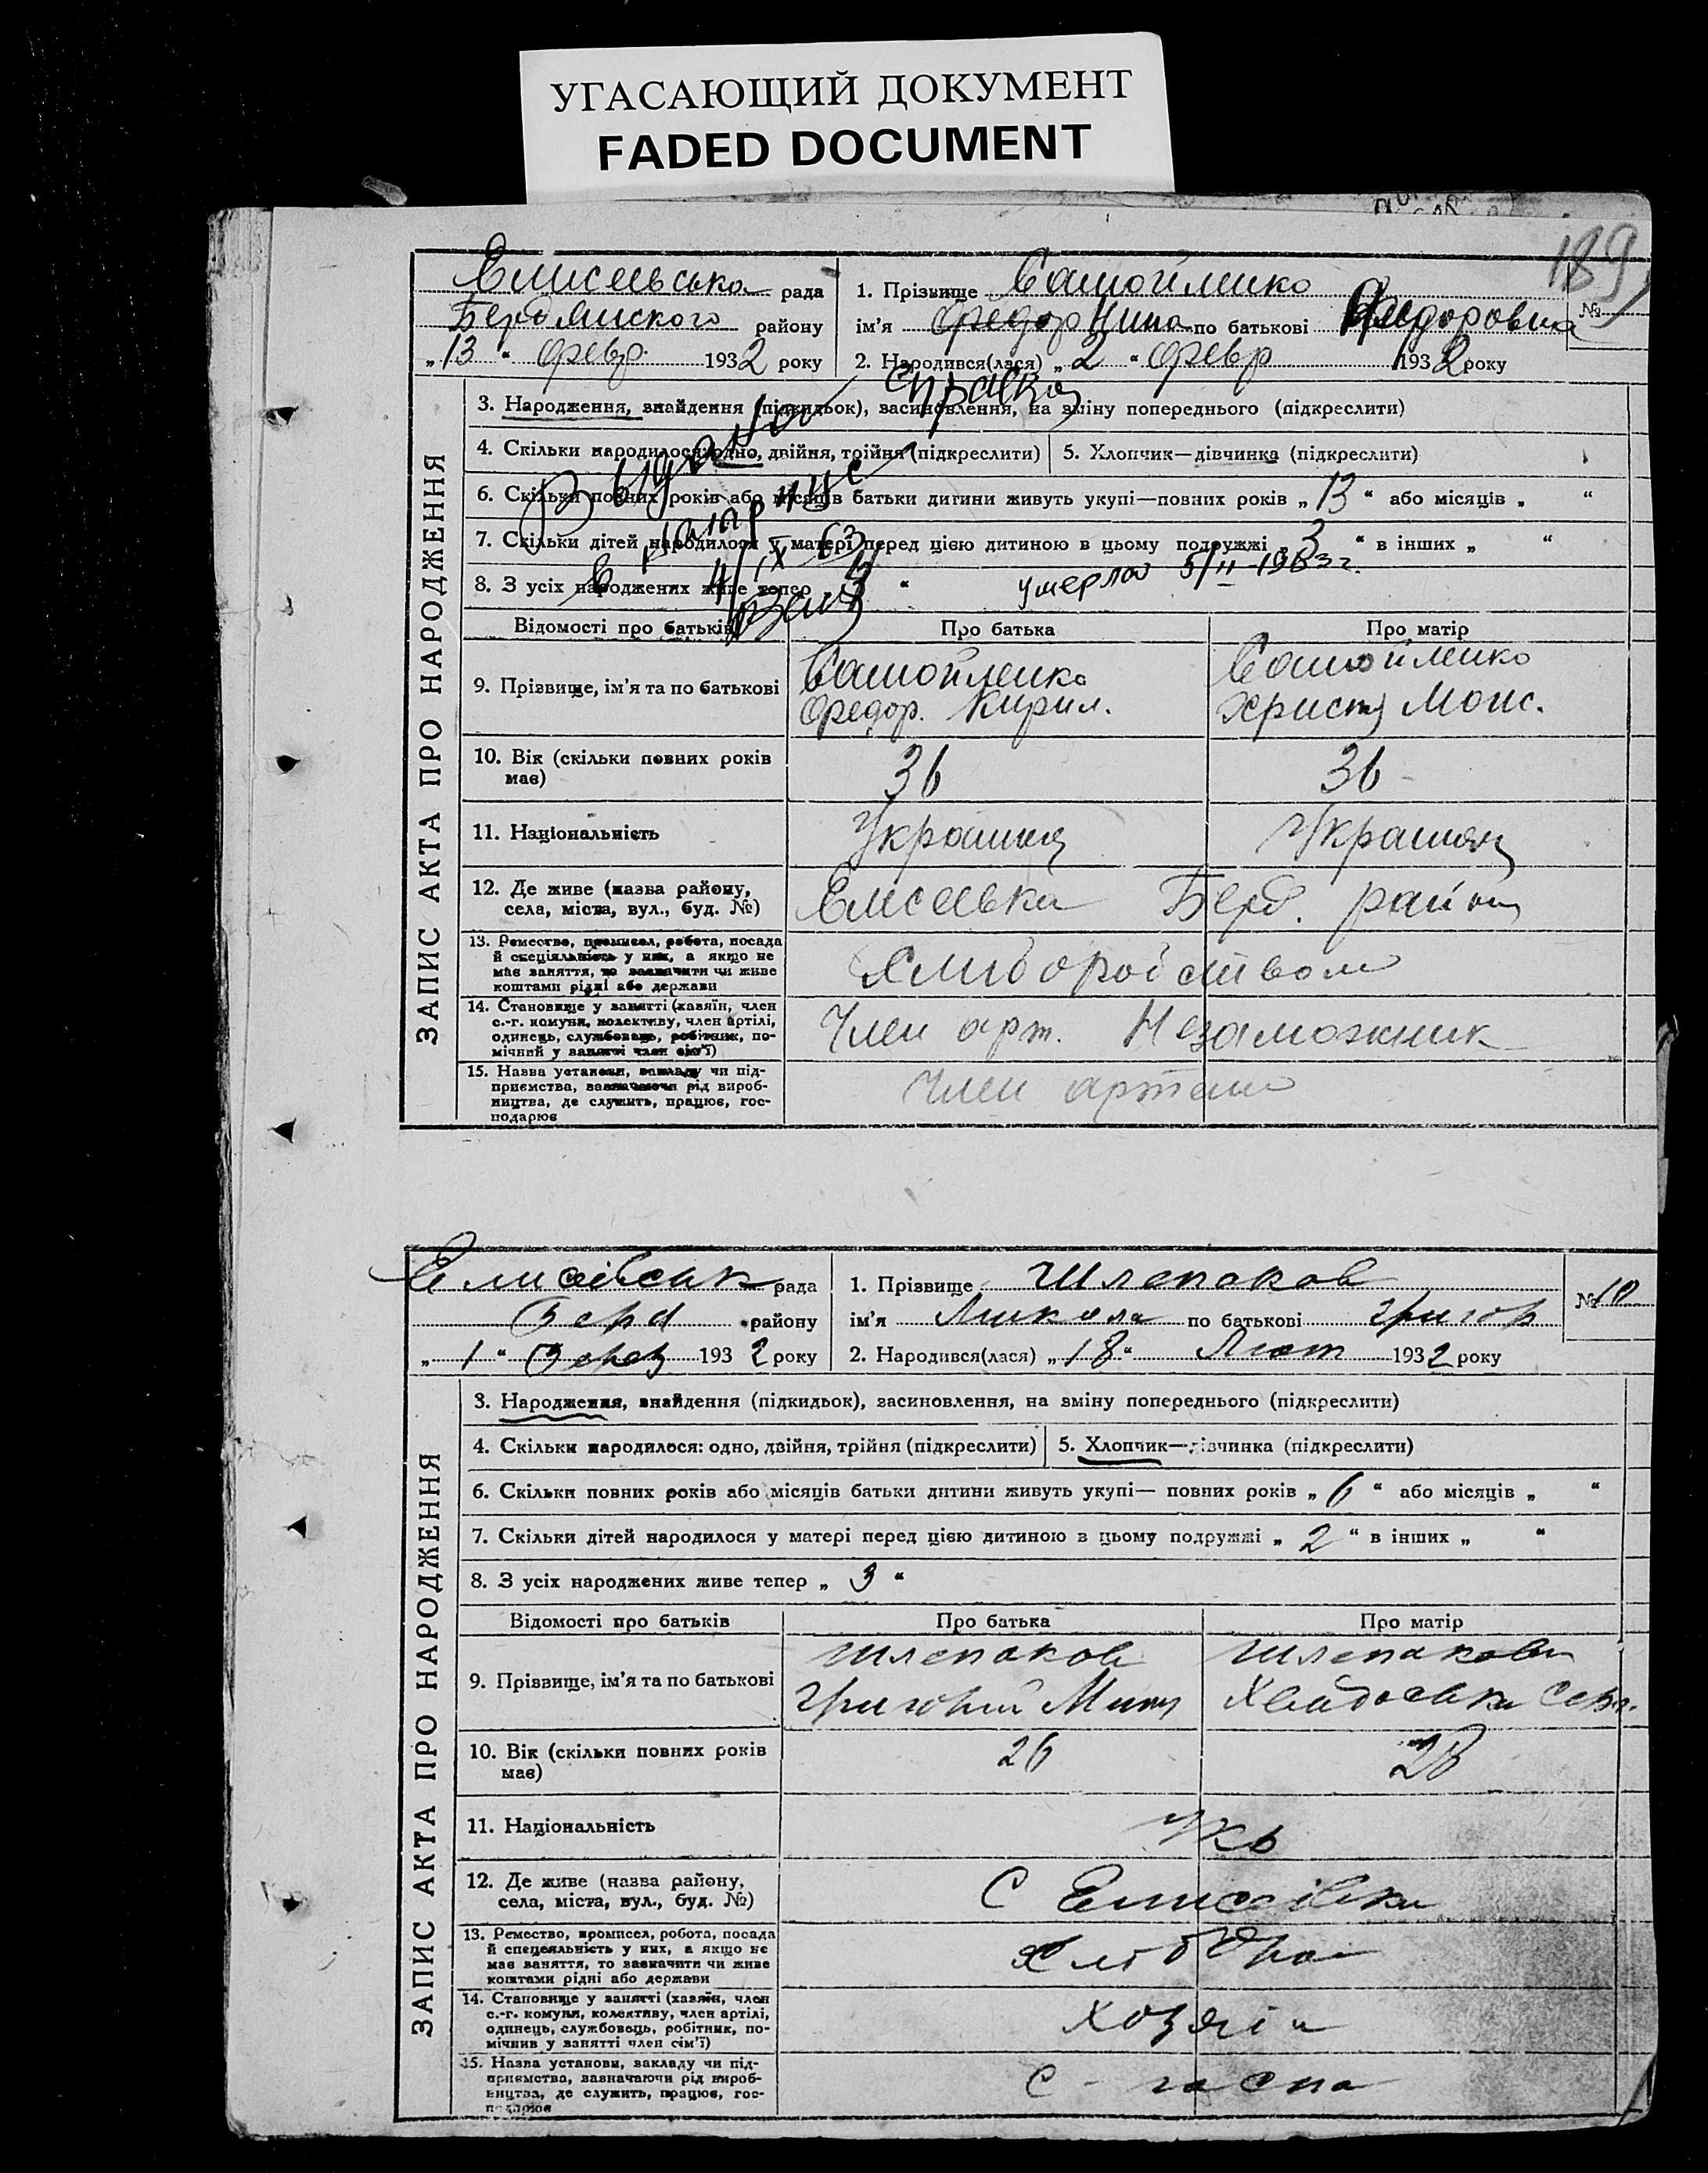 УГАСАЮЩИЙ ДОКУМЕНТ
FADED DOCUMENT
189
Елисеевська рада
Бердянского району
„13 “ февр. 1932 року
1. Прізвище Самойленко
ім’я Федор Нина по батькові Федоровна
№
2. Народився(лася) „ 2 “ февр 1932 року
ЗАПИС АКТА ПРО НАРОДЖЕННЯ
3. Народження, знайдення (підкидьок), засиновлення, на зміну попереднього (підкреслити)
4. Скільки народилося: одно, двійня, трійня (підкреслити)
5. Хлопчик—дівчинка (підкреслити)
6. Скільки повних років або місяців батьки дитини живуть укупі—повних років „ 13 “ або місяців „ “
7. Скільки дітей народилося у матері перед цією дитиною в цьому подружжі „ 3 “ в інших „ “
8. З усіх народжених живе тепер „ 3 “
Выдана справка
умерла 5/II-1933 г.
Відомості про батьків
Про батька
Про матір
9. Прізвище, ім’я та по батькові
Самойленко
Федор. Кирил.
Самойленко
Христя Моис.
10. Вік (скільки повних років
має)
36
36
11. Національність
Украинц
Украинц
12. Де живе (назва району,
села, міста, вул., буд. №)
Елисеевка Берд. району
13. Ремество, промисел, робота, посада
й спеціяльність у них, а якщо не
має заняття, то зазначити чи живе
коштами рідні або держави
Хлиборобством
14. Становище у занятті (хазяїн, член
с.-г. комуни, колективу, член артілі,
одинець, службовець, робітник, по-
мічний у занятті член сім’ї)
Член арт. Незаможник
15. Назва установи, закладу чи під-
приємства, зазначаючи рід вироб-
ництва, де служить, працює, гос-
подарює
Член артели
Елисеївськ рада
Берд району
„ 1 “ Берез 1932 року
1. Прізвище Шлепаков
ім’я Микола по батькові Григор
№ 10
2. Народився(лася) „ 18 “ Лют 1932 року
ЗАПИС АКТА ПРО НАРОДЖЕННЯ
3. Народження, знайдення (підкидьок), засиновлення, на зміну попереднього (підкреслити)
4. Скільки народилося: одно, двійня, трійня (підкреслити)
5. Хлопчик—дівчинка (підкреслити)
6. Скільки повних років або місяців батьки дитини живуть укупі— повних років „ 6 “ або місяців „ “
7. Скільки дітей народилося у матері перед цією дитиною в цьому подружжі „ 2 “ в інших „ “
8. З усіх народжених живе тепер „ 3 “
Відомості про батьків
Про батька
Про матір
9. Прізвище, ім’я та по батькові
Шлепаков
Григорий
Шлепакова
10. Вік (скільки повних років
має)
26
28
11. Національність
Укр
12. Де живе (назва району,
села, міста, вул., буд. №)
С Елисеівка
13. Ремество, промисел, робота, посада
й спецеяльність у них, а якщо не
має заняття, то зазначити чи живе
коштами рідні або держави
14. Становище у занятті (хазяїн, член
с.-г. комуни, колективу, член артілі,
одинець, службовець, робітник, по-
мічнив у занятті член сім’ї)
хозяін
15. Назва установи, закладу чи під-
приємства, зазначаючи рід вироб-
ництва, де служить, працює, гос-
подарює